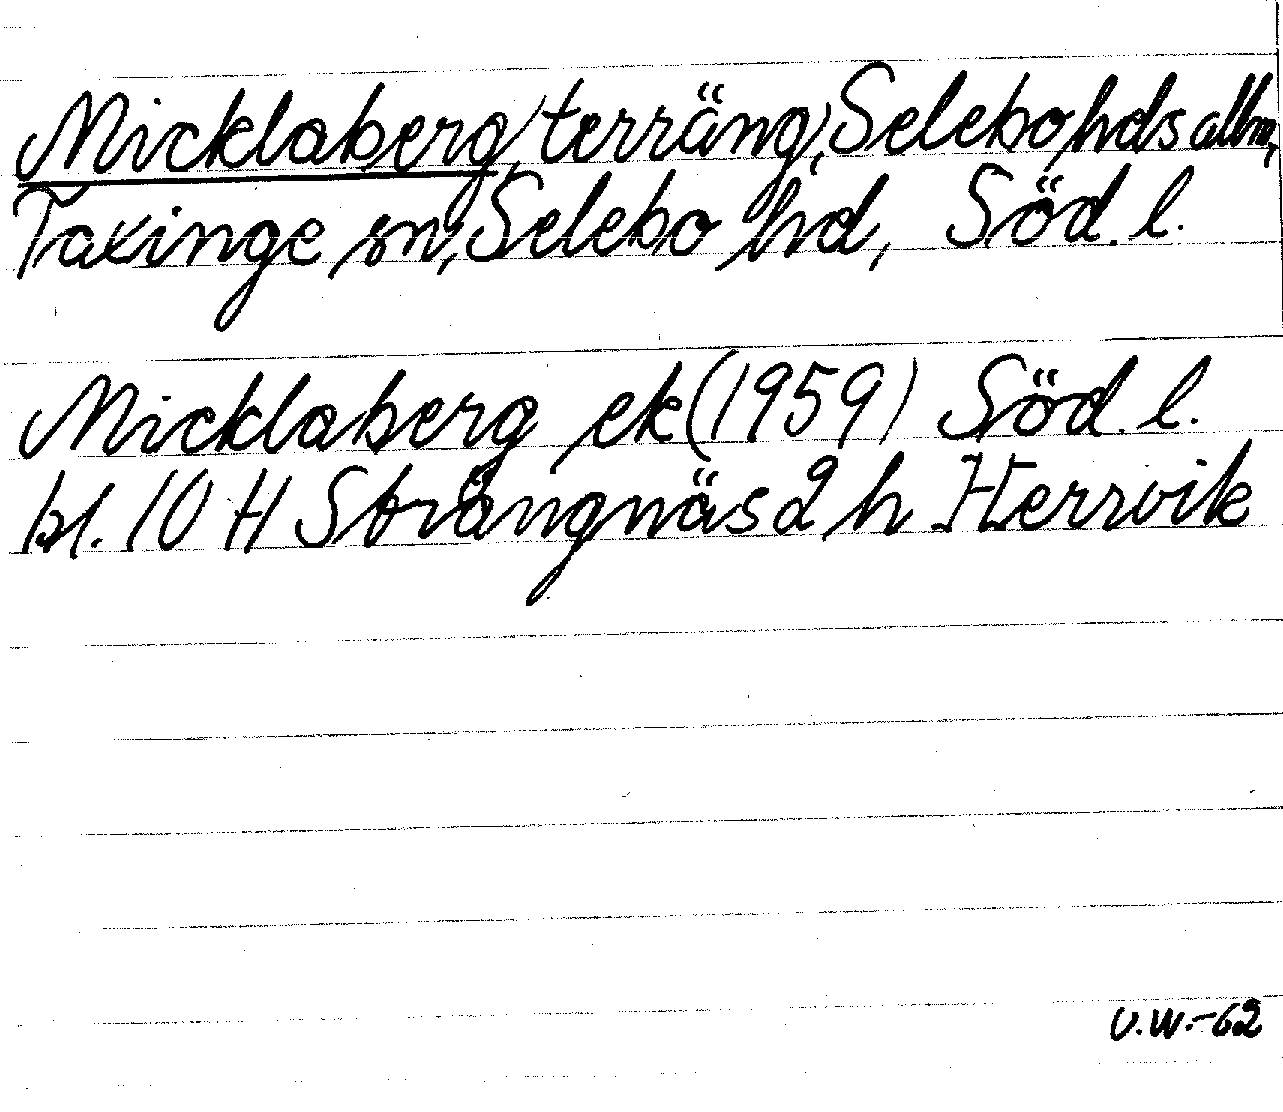 Micklaberg, terräng, Selebo hds allm,
Taxinge sn, Selebo hd, Söd. l.
Micklaberg ek (1959) Söd. l.
bl. 10 H Strängnäs 2 h Herrvik
U.W.-62